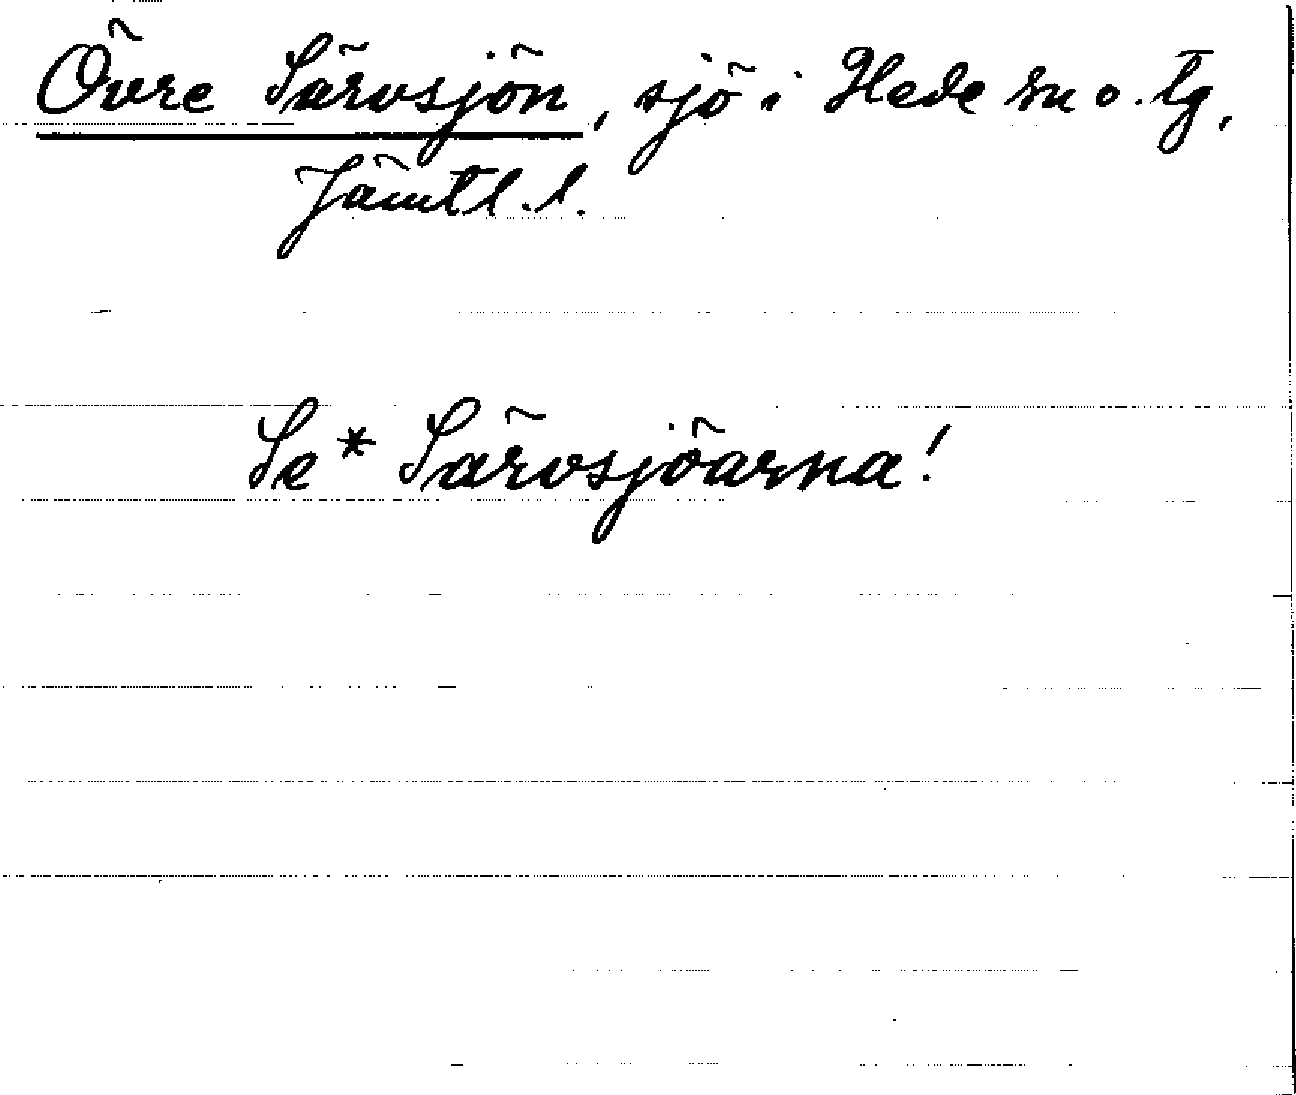 Övre Särvsjön, sjö i Hede sn o. tg,
Jämtl. l.
Se * Särvsjöarna!